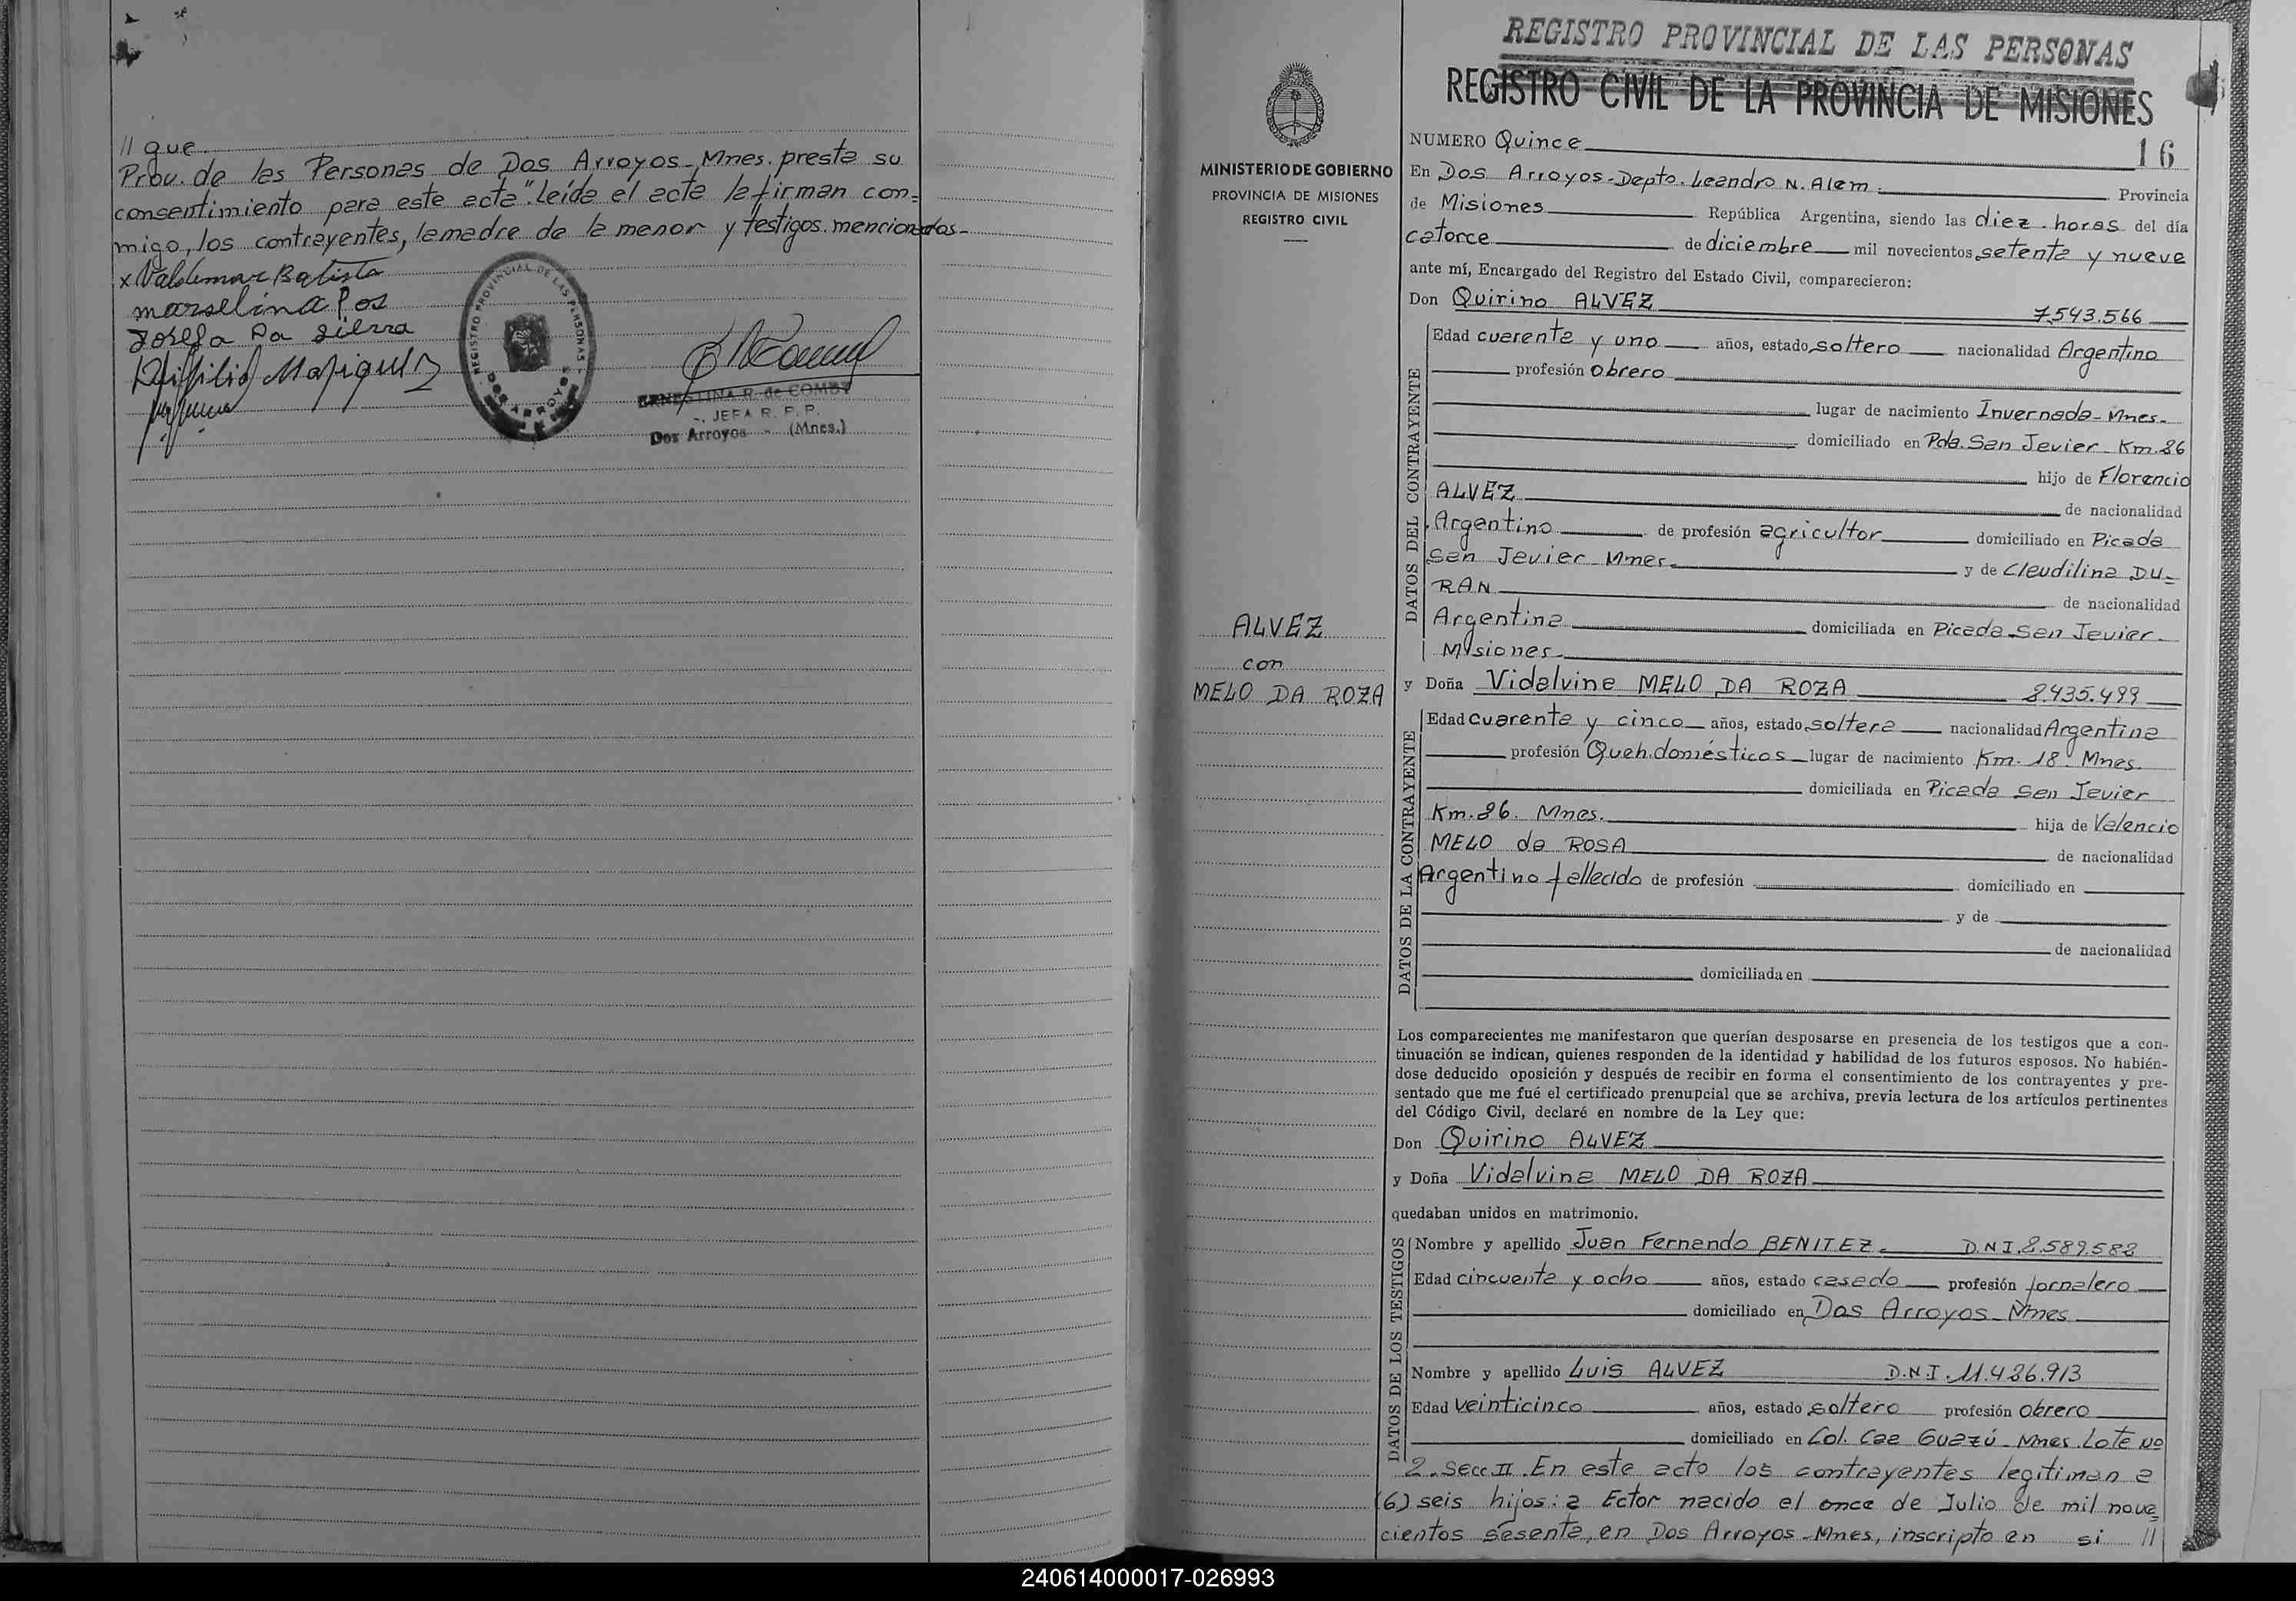 // que
Prov. de las Personas de Dos Arroyos-Mnes. presta su
consentimiento para este acta". leída el acta la firman con=
migo, los contrayentes, la madre de la menor y testigos mencionados-
x Valdemar Batista
marselina
Josefa Da
REGISTRO PROVINCIAL DE LAS PERSONAS
DOS ARROYOS
ERNESTINA R. de COMBY
JEFA R. P. P.
Dos Arroyos - (Mnes.)
REGISTRO PROVINCIAL DE LAS PERSONAS
REGISTRO CIVIL DE LA PROVINCIA DE MISIONES
MINISTERIO DE GOBIERNO
PROVINCIA DE MISIONES
REGISTRO CIVIL
ALVEZ
con
MELO DA ROZA
NUMERO Quince 16
En Dos Arroyos-Depto. Leandro N. Alem. Provincia
de Misiones República Argentina, siendo las diez horas del día
catorce de diciembre mil novecientos setenta y nueve
ante mí, Encargado del Registro del Estado Civil, comparecieron:
Don Quirino ALVEZ 7.543.566
DATOS DEL CONTRAYENTE
Edad cuarenta y uno años, estado soltero nacionalidad Argentino
profesión obrero
lugar de nacimiento Invernada-Mnes.
domiciliado en Pda. San Javier Km. 26
hijo de Florencio
ALVEZ de nacionalidad
Argentino de profesión agricultor domiciliado en Picada
San Javier Mnes. y de Claudilina DU=
RAN de nacionalidad
Argentina domiciliada en Picada San Javier.
Misiones
y Doña Vidalvina MELO DA ROZA 2.435.499
DATOS DE LA CONTRAYENTE
Edad cuarenta y cinco años, estado soltera nacionalidad Argentina
profesión Queh. domésticos lugar de nacimiento Km. 18. Mnes.
domiciliada en Picada San Javier
Km. 26. Mnes. hija de Valencio
MELO da ROSA de nacionalidad
Argentino fallecido de profesión domiciliado en
y de
de nacionalidad
domiciliada en
Los comparecientes me manifestaron que querían desposarse en presencia de los testigos que a con-
tinuación se indican, quienes responden de la identidad y habilidad de los futuros esposos. No habién-
dose deducido oposición y después de recibir en forma el consentimiento de los contrayentes y pre-
sentado que me fué el certificado prenupcial que se archiva, previa lectura de los artículos pertinentes
del Código Civil, declaré en nombre de la Ley que:
Don Quirino ALVEZ
y Doña Vidalvina MELO DA ROZA
quedaban unidos en matrimonio.
DATOS DE LOS TESTIGOS
Nombre y apellido Juan Fernando BENITEZ. D.N.I. 2.589.582
Edad cincuenta y ocho años, estado casado profesión Jornalero
domiciliado en Dos Arroyos-Mnes
Nombre y apellido Luis ALVEZ D.N.I. 11.426.913
Edad veinticinco años, estado soltero profesión obrero
domiciliado en Col. Caa Guazú-Mnes Lote Nº
2. Secc II. En este acto los contrayentes legitiman a
(6) seis hijos: a Ector nacido el once de Julio de mil nove=
cientos sesenta, en Dos Arroyos-Mnes, inscripto en si //
240614000017-026993